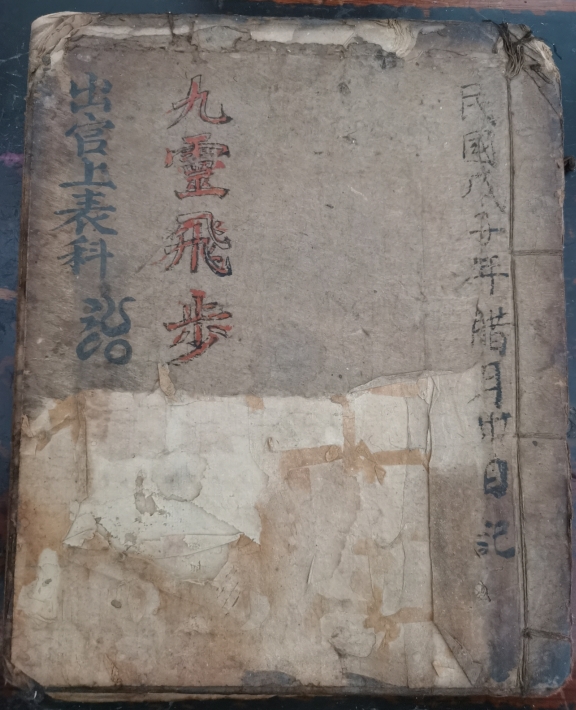 民國戊子年腊月廿日記
九霊飛步
出官上表科